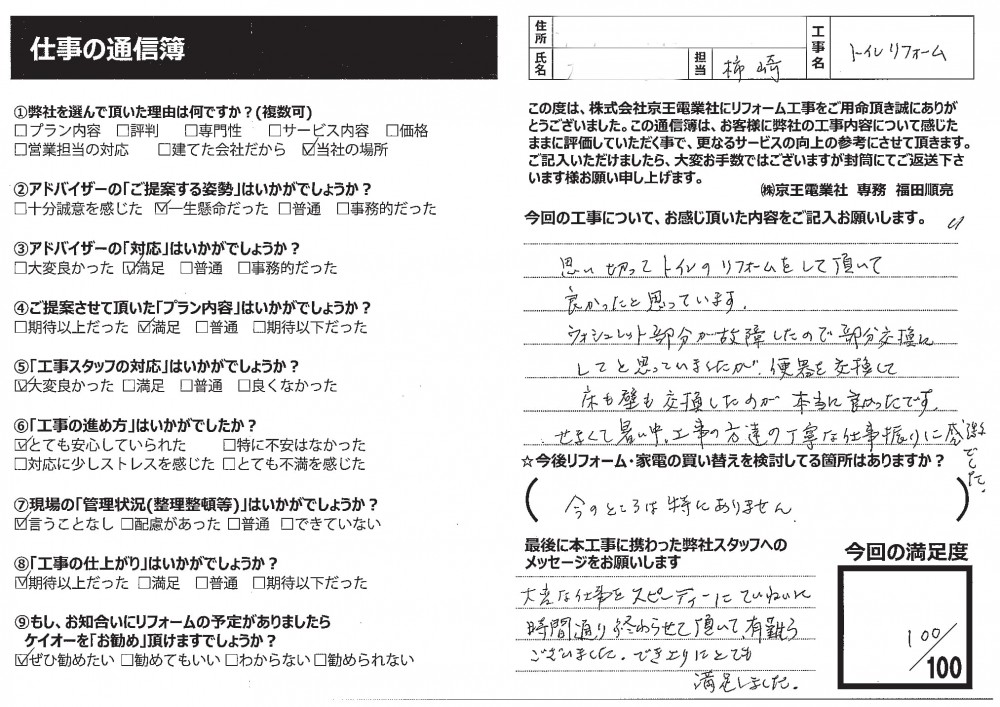 仕事の通信簿
①弊社を選んで頂いた理由は何ですか?(複数可)
□プラン内容 □評判 □専門性 □サービス内容 □価格
□営業担当の対応 □建てた会社だから ☑当社の場所
②アドバイザーの「ご提案する姿勢」はいかがでしょうか?
□十分誠意を感じた ☑一生懸命だった □普通 □事務的だった
③アドバイザーの「対応」はいかがでしょうか?
□大変良かった ☑満足 □普通 □事務的だった
④ご提案させて頂いた「プラン内容」はいかがでしょうか?
□期待以上だった ☑満足 □普通 □期待以下だった
⑤「工事スタッフの対応」はいかがでしょうか?
☑大変良かった □満足 □普通 □良くなかった
⑥「工事の進め方」はいかがでしたか?
☑とても安心していられた □特に不安はなかった
□対応に少しストレスを感じた □とても不満を感じた
⑦現場の「管理状況(整理整頓等)」はいかがでしょうか?
☑言うことなし □配慮があった □普通 □できていない
⑧「工事の仕上がり」はいかがでしょうか?
☑期待以上だった □満足 □普通 □期待以下だった
⑨もし、お知合いにリフォームの予定がありましたら
ケイオーを「お勧め」頂けますでしょうか?
☑ぜひ勧めたい □勧めてもいい □わからない □勧められない
住所
氏名
担当 柿崎
工事名 トイレリフォーム
この度は、株式会社京王電業社にリフォーム工事をご用命頂き誠にありが
とうございました。この通信簿は、お客様に弊社の工事内容について感じた
ままに評価していただく事で、更なるサービスの向上の参考にさせて頂きます。
ご記入いただけましたら、大変お手数ではございますが封筒にてご返送下さ
います様お願い申し上げます。
㈱京王電業社 専務 福田順亮
今回の工事について、お感じ頂いた内容をご記入お願いします。
思い切ってトイレのリフォームをして頂いて
良かったと思っています。
ウォシュレット部分が故障したので部分交換に
してと思っていましたが、便器を交換して
床も壁も交換したのが本当に良かったです。
せまくて暑い中、工事の方達の丁寧な仕事振りに感激でした。
☆今後リフォーム・家電の買い替えを検討してる箇所はありますか?
(今のところは特にありません)
最後に本工事に携わった弊社スタッフへの
メッセージをお願いします
大変な仕事をスピーディーにていねいに
時間通り終わらせて頂いて有難う
ございました。でき上りにとても
満足しました。
今回の満足度
100/100